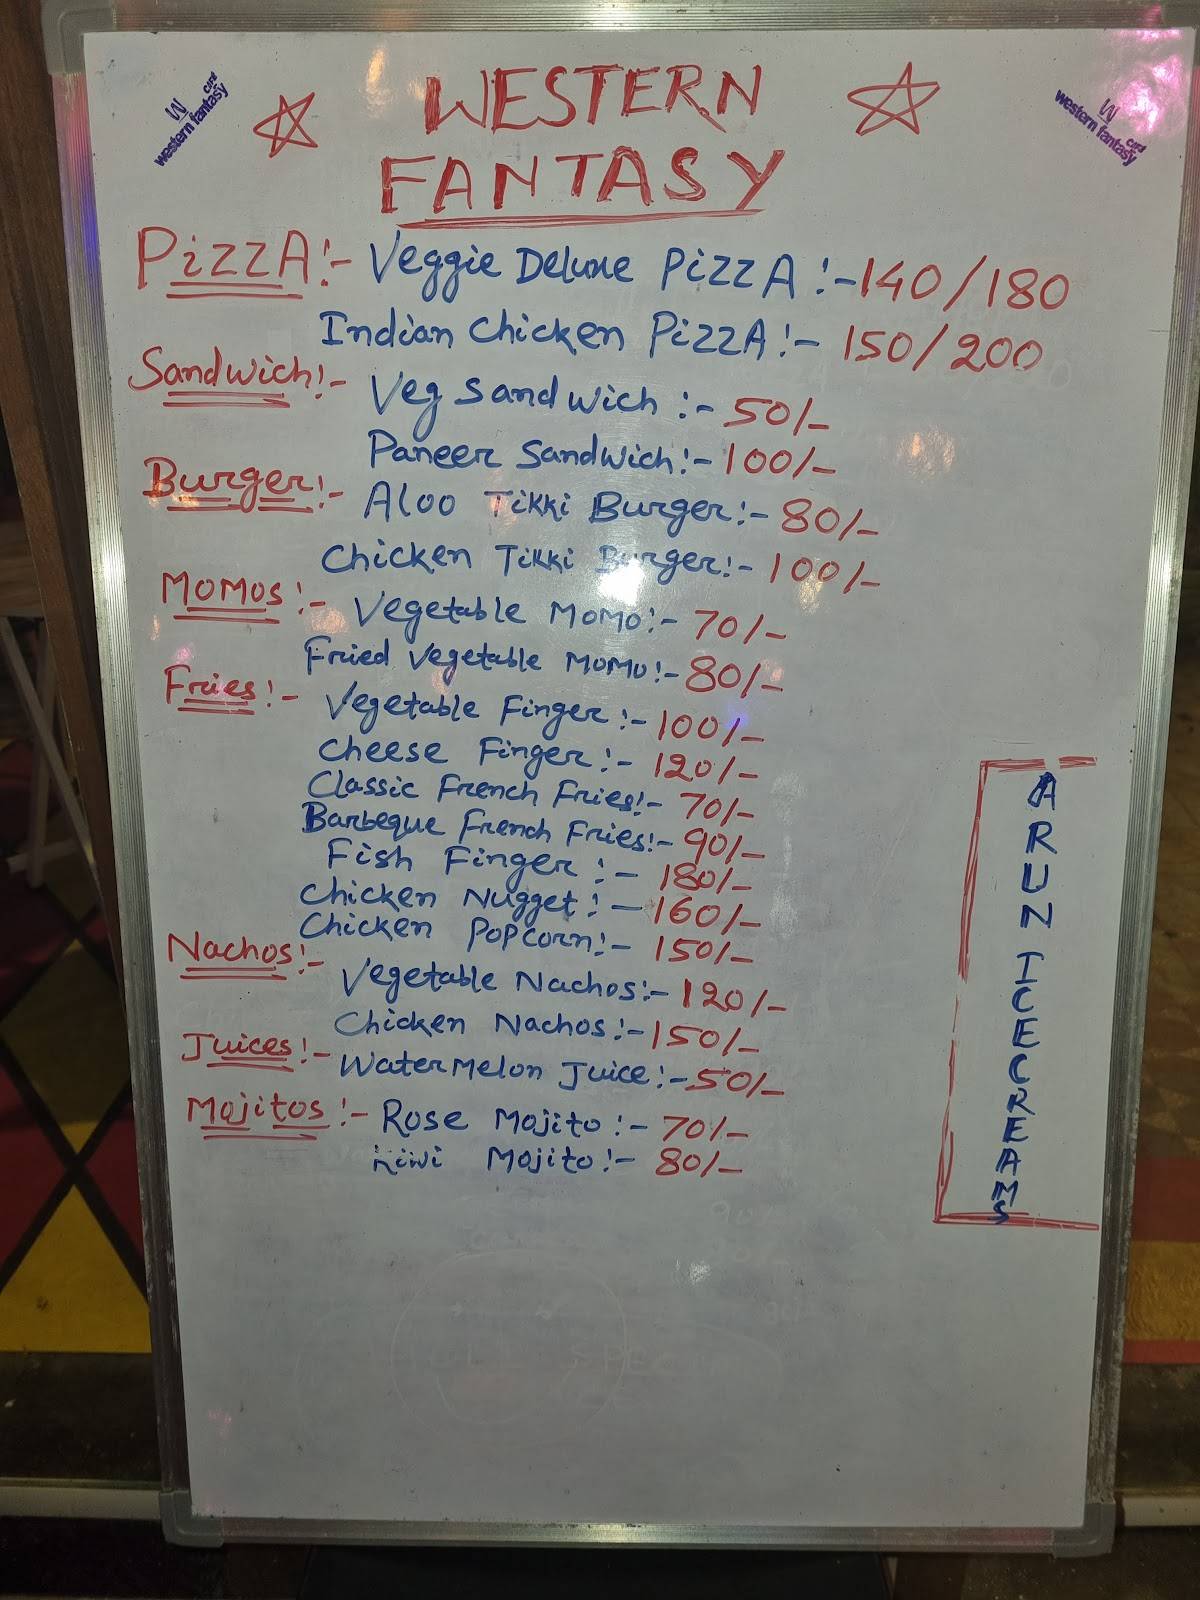 W
card
western fantasy
WESTERN
FANTASY
W
card
western fantasy
PizzA:- Veggie Deluxe PizzA :- 140/180
Indian Chicken PizzA:- 150/200
Sandwich:- Veg Sandwich :- 50/-
Paneer Sandwich:- 100/-
Burger:- Aloo Tikki Burger:- 80/-
Chicken Tikki Burger:- 100/-
MOMOS:- Vegetable MOMO:- 70/-
Fried Vegetable MOMO:- 80/-
Fries:- Vegetable Finger:- 100/-
Cheese Finger:- 120/-
Classic French Fries:- 70/-
Barbeque French Fries:- 90/-
Fish Finger:- 180/-
Chicken Nugget:- 160/-
Chicken Popcorn:- 150/-
Nachos:- Vegetable Nachos:- 120/-
Chicken Nachos:- 150/-
Juices:- Watermelon Juice:- 50/-
Mojitos:- Rose Mojito:- 70/-
Kiwi Mojito:- 80/-
ARUN ICECREAMS